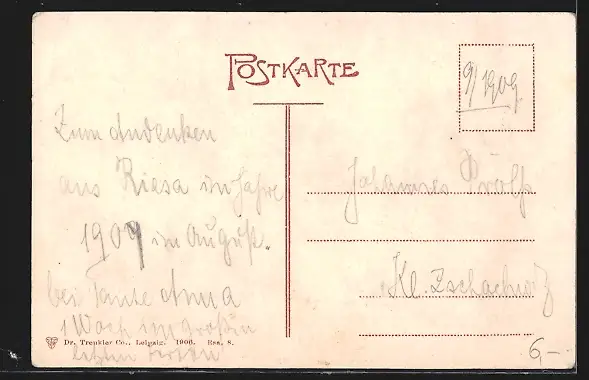 POSTKARTE
9/1909
Zum Andenken
aus Riesa im Jahre
1909 im August.
bei Tante Anna
1 Woch im Großen
letzten Ferien
Johannes Wolf
Kl. Zschachwitz
Dr. Trenkler Co., Leipzig. 1906. Rsa. 8.
6,-